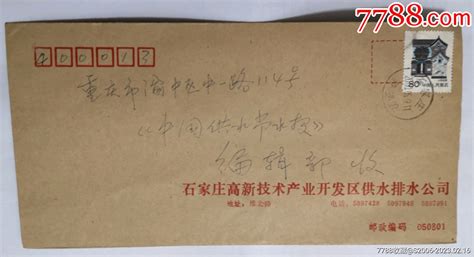 7788.com
400013
80
重庆市渝中区中一路114号
《中国供水节水报》
编辑部收
石家庄高新技术产业开发区供水排水公司
地址：
电话：
邮政编码 050801
7788收藏@S2006-2023.02.16